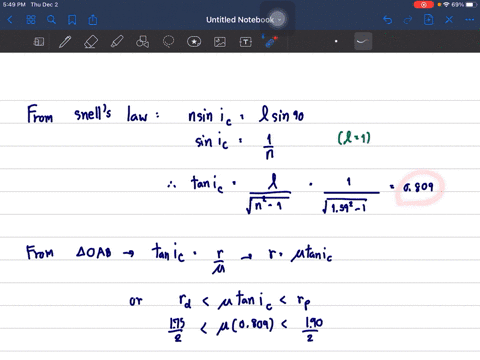 5:49 PM Thu Dec 2
69%
Untitled Notebook
From snell's law : n sin i_c = l sin 90
sin i_c = 1/n (l=1)
∴ tan i_c = l/√(n²-1) = 1/√(1.59²-1) = 0.809
From ΔOAB → tan i_c = r/μ → r = μ tan i_c
or r_d < μ tan i_c < r_p
1.75/2 < μ(0.809) < 1.90/2